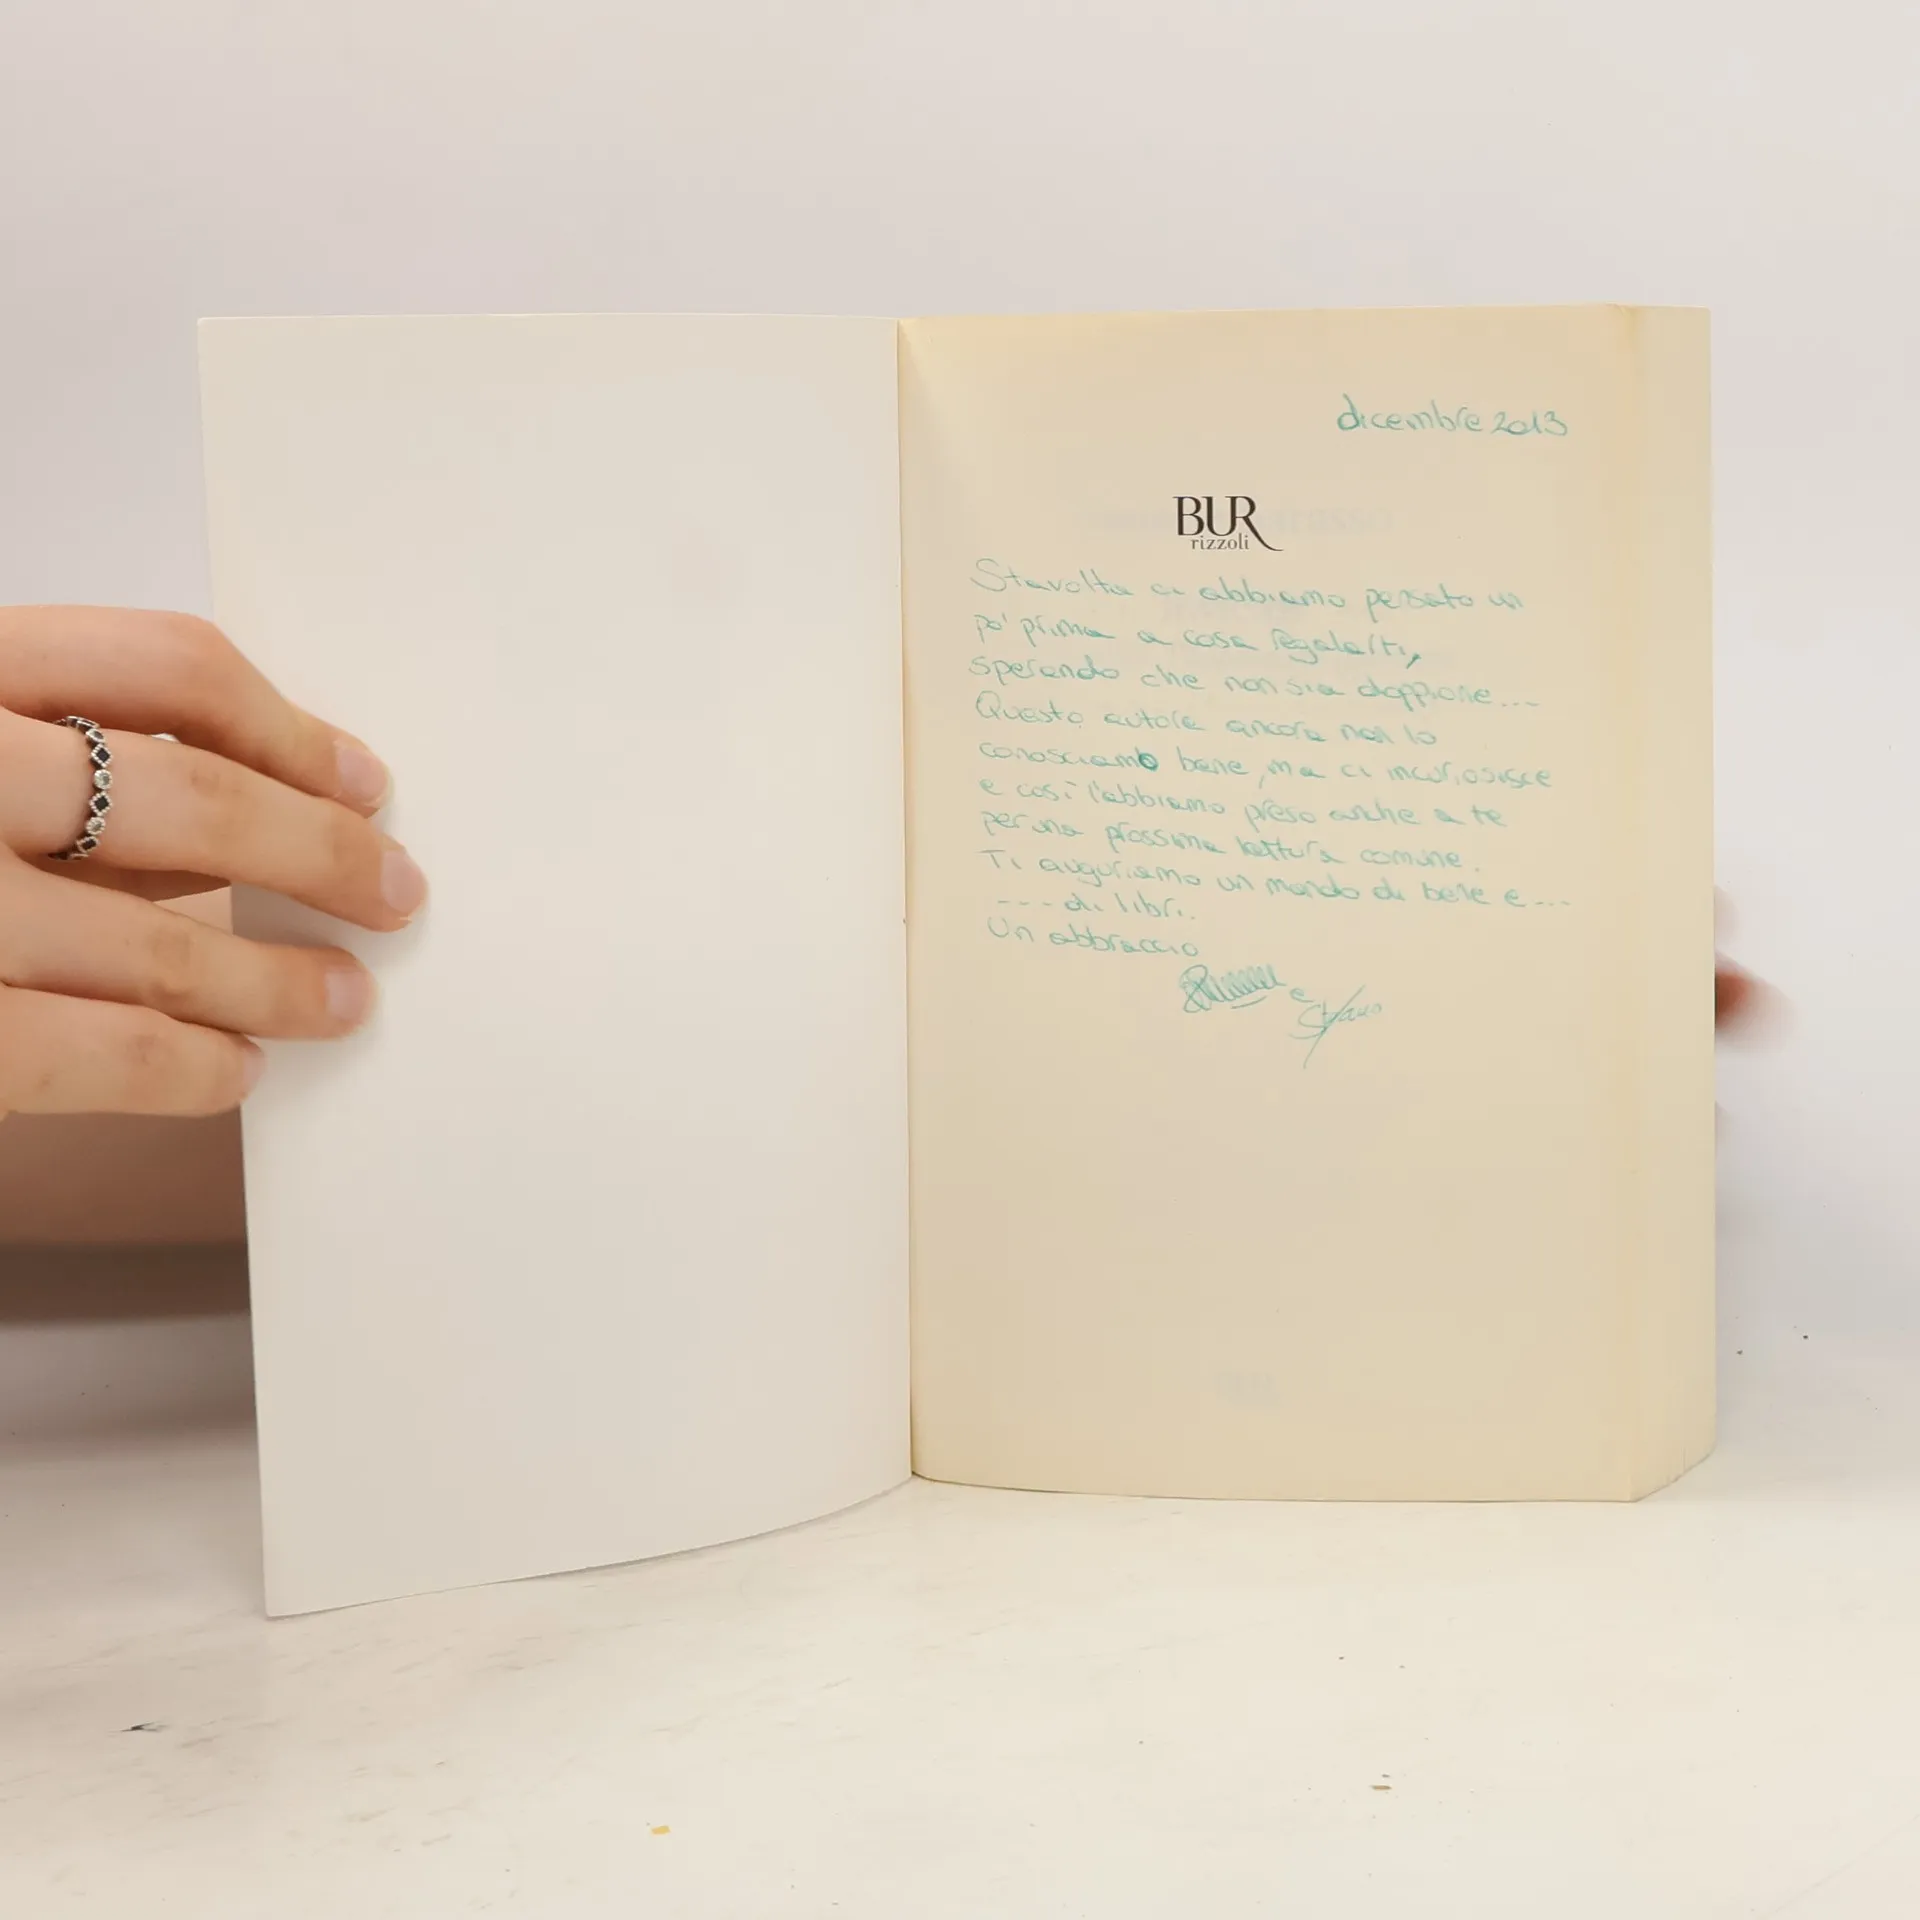 dicembre 2013
BUR
rizzoli
Stavolta ci abbiamo pensato un
po' prima a cosa regalarti,
sperando che non sia doppione...
Questo autore ancora non lo
conosciamo bene, ma ci incuriosisce
e così l'abbiamo preso anche a te
per una prossima lettura comune.
Ti auguriamo un mondo di bene e...
--- di libri.
Un abbraccio
e